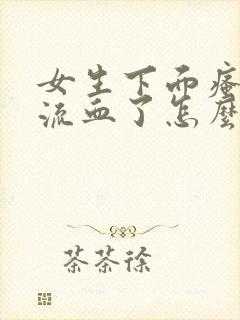 女生下面瘙
流血了怎麼
茶茶徐